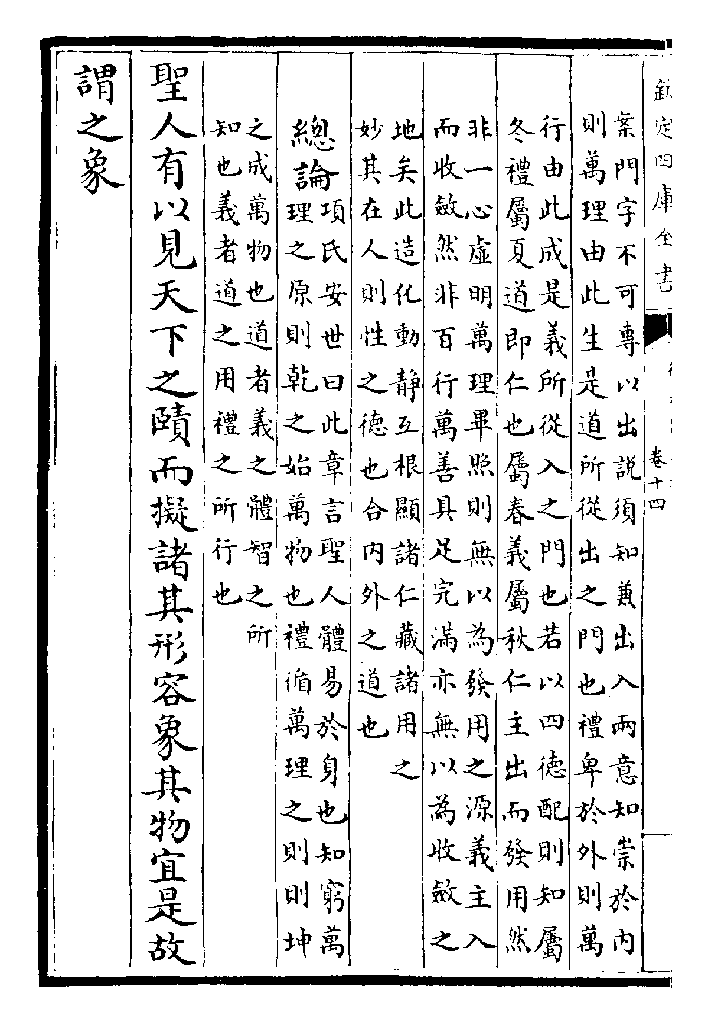 欽定四庫全書
卷十四
案門字不可專以出說須知兼出入兩意知崇於內
則萬理由此生是道所從出之門也禮卑於外則萬
行由此成是義所從入之門也若以四德配則知屬
冬禮屬夏道即仁也屬春義屬秋仁主出而發用然
非一心虛明萬理畢照則無以為發用之源義主入
而收斂然非百行萬善具足完滿亦無以為收斂之
地矣此造化動静互根顯諸仁藏諸用之
妙其在人則性之德也合内外之道也
總論
項氏安世曰此章言聖人體易於身也知窮萬
理之原則乾之始萬物也禮循萬理之則則坤
之成萬物也道者義之體智之所
知也義者道之用禮之所行也
聖人有以見天下之賾而擬諸其形容象其物宜是故
謂之象